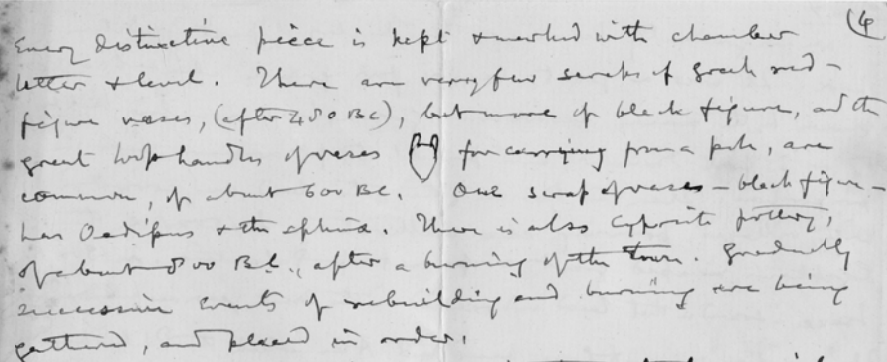 (4
Every distinctive piece is kept & marked with chamber
letter & level. There are very few scraps of Greek red-
figure vases, (after 480 BC), but more of black figure, and the
great loop handles of vases for carrying from a pole, are
common, of about 600 BC. One scrap of vases – black figure –
has Oedipus & the sphinx. There is also Cypriote pottery,
of about 800 B.C., after a burning of the town. Gradually
successive events of rebuilding and burning are being
gathered, and placed in order.